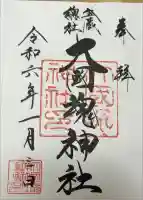 奉拝
武蔵
総社
大國魂神社
令和六年一月二日